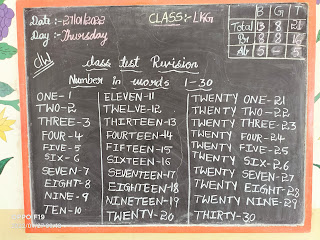 Date:-27/01/2022
CLASS:-LKG
B G T
Total 13 8 21
Pr 8 8 16
Ab 5 - 5
Day:-Thursday
C/W
class test Revision
Number in words 1-30
ONE-1
TWO-2
THREE-3
FOUR-4
FIVE-5
SIX-6
SEVEN-7
EIGHT-8
NINE-9
TEN-10
ELEVEN-11
TWELVE-12
THIRTEEN-13
FOURTEEN-14
FIFTEEN-15
SIXTEEN-16
SEVENTEEN-17
EIGHTEEN-18
NINETEEN-19
TWENTY-20
TWENTY ONE-21
TWENTY TWO-22
TWENTY THREE-23
TWENTY FOUR-24
TWENTY FIVE-25
TWENTY SIX-26
TWENTY SEVEN-27
TWENTY EIGHT-28
TWENTY NINE-29
THIRTY-30